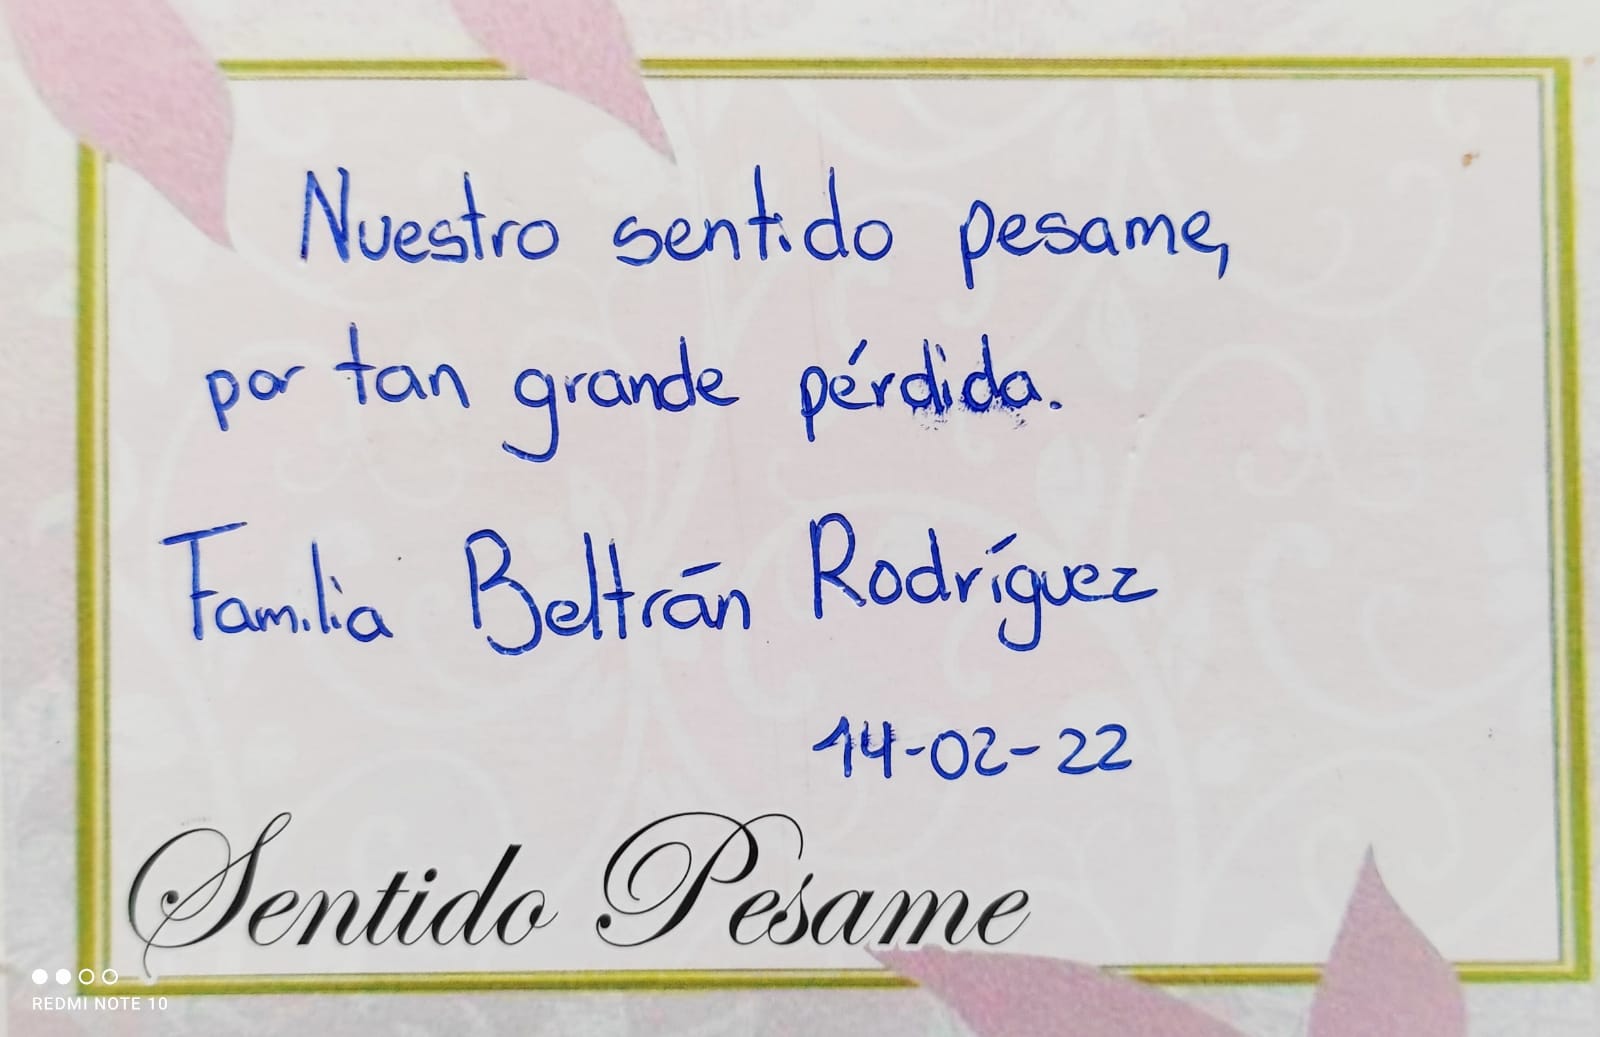 Nuestro sentido pesame,
por tan grande pérdida.
Familia Beltrán Rodríguez
14-02-22
Sentido Pesame
REDMI NOTE 10